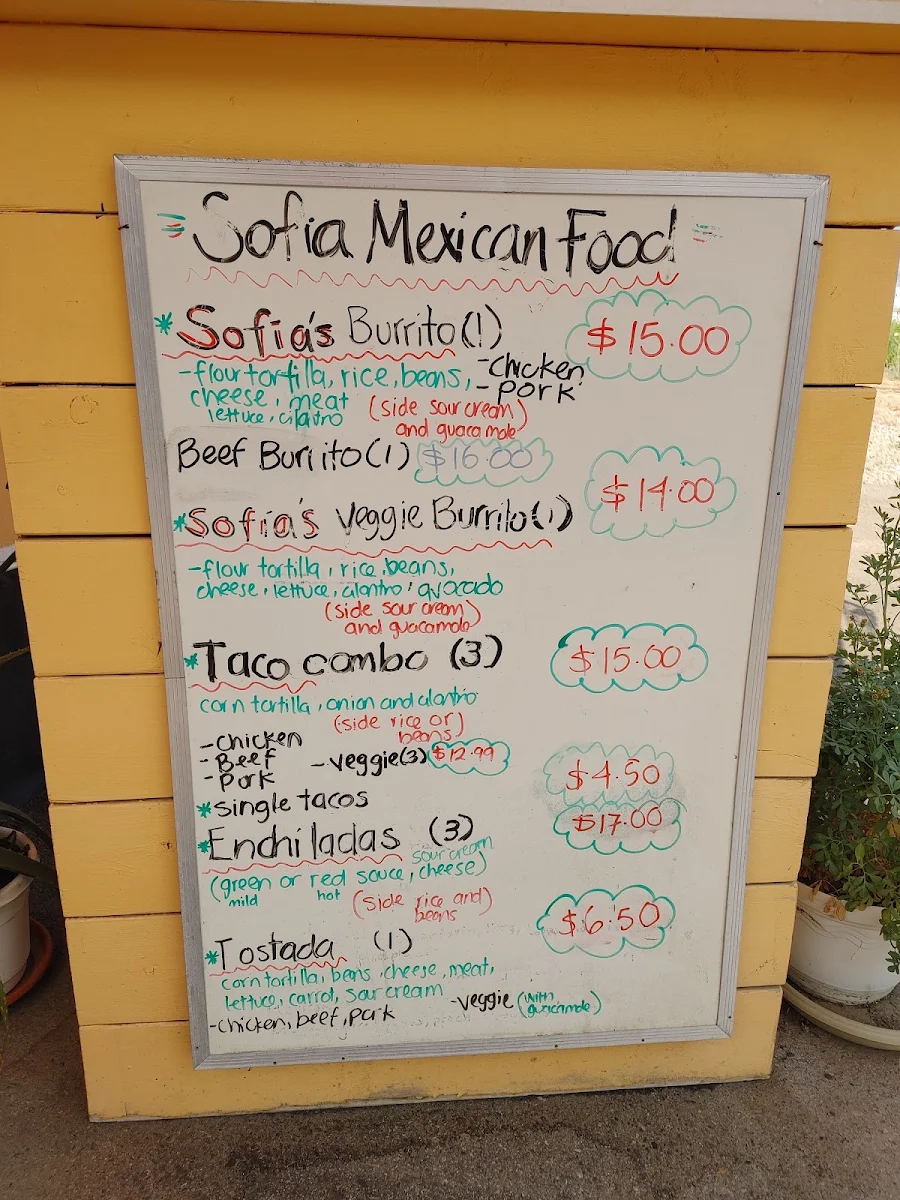 Sofia Mexican Food
* Sofia's Burrito (1) $15.00
-flour tortilla, rice, beans, -chicken
cheese, meat -pork
lettuce, cilantro (side sour cream)
and guacamole
Beef Burrito (1) $16.00
*Sofia's Veggie Burrito (1) $14.00
-flour tortilla, rice, beans,
cheese, lettuce, cilantro, avocado
(side sour cream)
and guacamole
*Taco combo (3) $15.00
corn tortilla, onion and cilantro
(side rice or)
beans)
-chicken
-Beef -veggie(3) $12.99
-Pork
*single tacos $4.50
*Enchiladas (3) $17.00
sour cream
(green or red sauce, cheese)
mild hot (side rice and)
beans
*Tostada (1) $6.50
corn tortilla, beans, cheese, meat,
lettuce, carrot, sour cream -veggie (with
guacamole)
-chicken, beef, pork